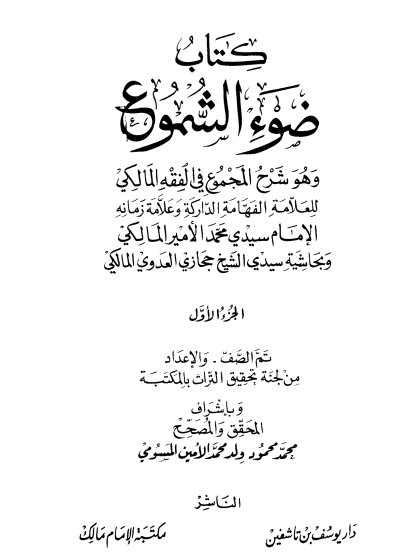 كِتَابُ
ضَوْءُ الشُّمُوعِ
وَهُوَ شَرْحُ المَجْمُوعِ فِي الفِقْهِ المَالِكِي
لِلعَلَّامَةِ الفَهَّامَةِ الدَّارِكَةِ وَعَلَّامَةِ زَمَانِهِ
الإِمَامِ سِيدِي مُحَمَّد الأَمِيرِ المَالِكِي
وَبِحَاشِيَةِ سِيدِي الشَّيْخِ حِجَازِي العَدَوِي المَالِكِي
الجُزْءُ الأَوَّل
تَمَّ الصَّفّ ـ وَالإِعْدَاد
مِنْ لَجْنَةِ تَحْقِيقِ التُّرَاثِ بِالمَكْتَبَةِ
وَبِإِشْرَافِ
المُحَقِّقِ وَالمُصَحِّحِ
مُحَمَّد مَحْمُود وَلَد مُحَمَّد الأَمِين المَسُّومِي
النَّاشِر
دَار يُوسُف بْن تَاشْفِين
مَكْتَبَة الإِمَام مَالِك